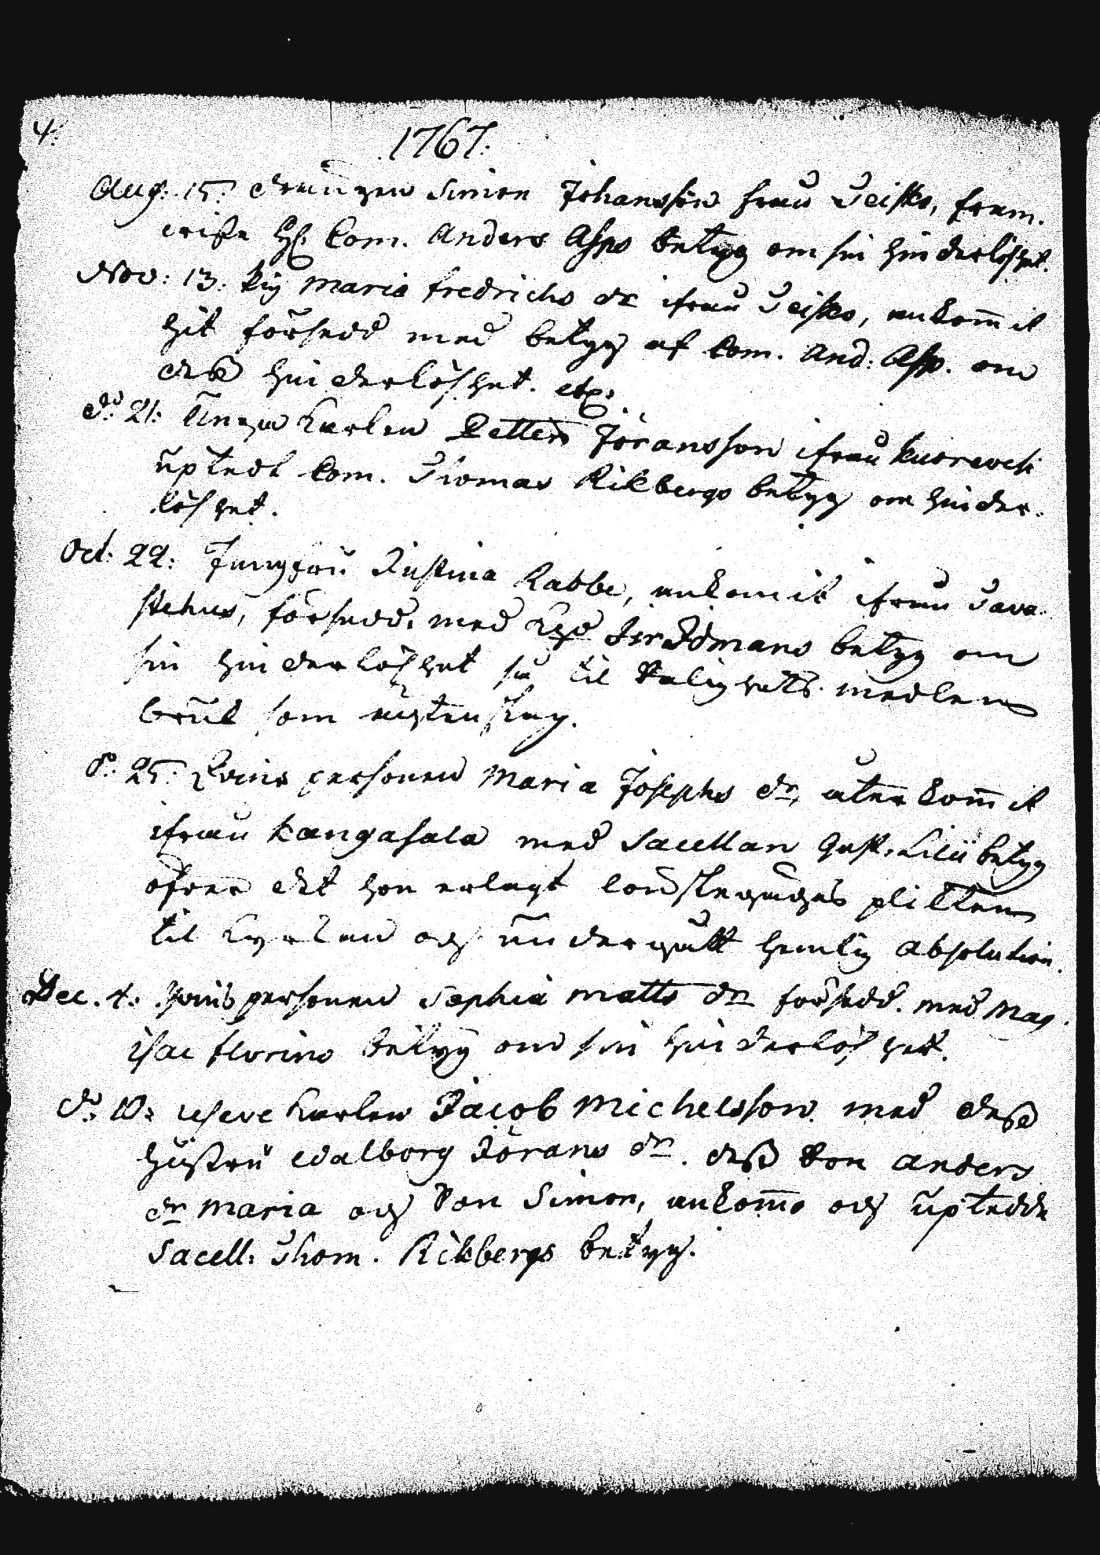 4.
1767.
Aug. 15. drängen Simon Johansson från Teisko, fram-
wiste H. Com. Anders Asps betyg om sin hinderlöshet.
Nov: 13. Pig Maria Fredrichs dr ifrån Teisko, ankommit
hit försedd med betyg af Com. And: Asp. om
dess hinderlöshet. etc.
d:o 21. Unga Karlen Petter Jöransson ifrån Kuorevesi
uptedt Com. Thomas Rikbergs betyg om hinder-
löshet.
Oct: 22: Jungfru Justina Rabbe, ankommit ifrån Tava-
stehus, försedd. med betyg om
sin hinderlöshet så til Salighets medlens
bruk som ägtenskap.
d:o 25. Qvins personen Maria Josephs dr, återkommit
ifrån Kangasala med Sacellan Gust. Lilii betyg
öfver det hon erlagt lönskelägets plikten
til Kyrkan och undergått hemlig absolution.
Dec. 4. Qvins personen Sophia Matts dr försedd. med Mag.
Isac Florins betyg om sin hinderlöshet.
d:o 10. Karlen Jacob Michelsson med dess
hustru Walborg Jörans dr. dess Son Anders
dr Maria och Son Simon, ankomo och uptedde
Sacell: Thom. Rikbergs betyg.